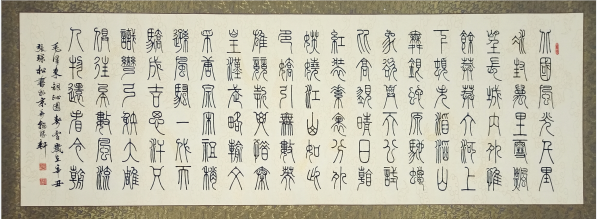 北國風光千里
冰封萬里雪飄
望長城內外惟
餘莽莽大河上
下頓失滔滔山
舞銀蛇原馳蠟
象欲與天公試
比高須晴日看
紅裝素裹分外
妖嬈江山如此
多嬌引無數英
雄競折腰惜秦
皇漢武略輸文
采唐宗宋祖稍
遜風騷一代天
驕成吉思汗只
識彎弓射大雕
俱往矣數風流
人物還看今朝
毛澤東詞沁園春雪歲在辛丑
松書於京